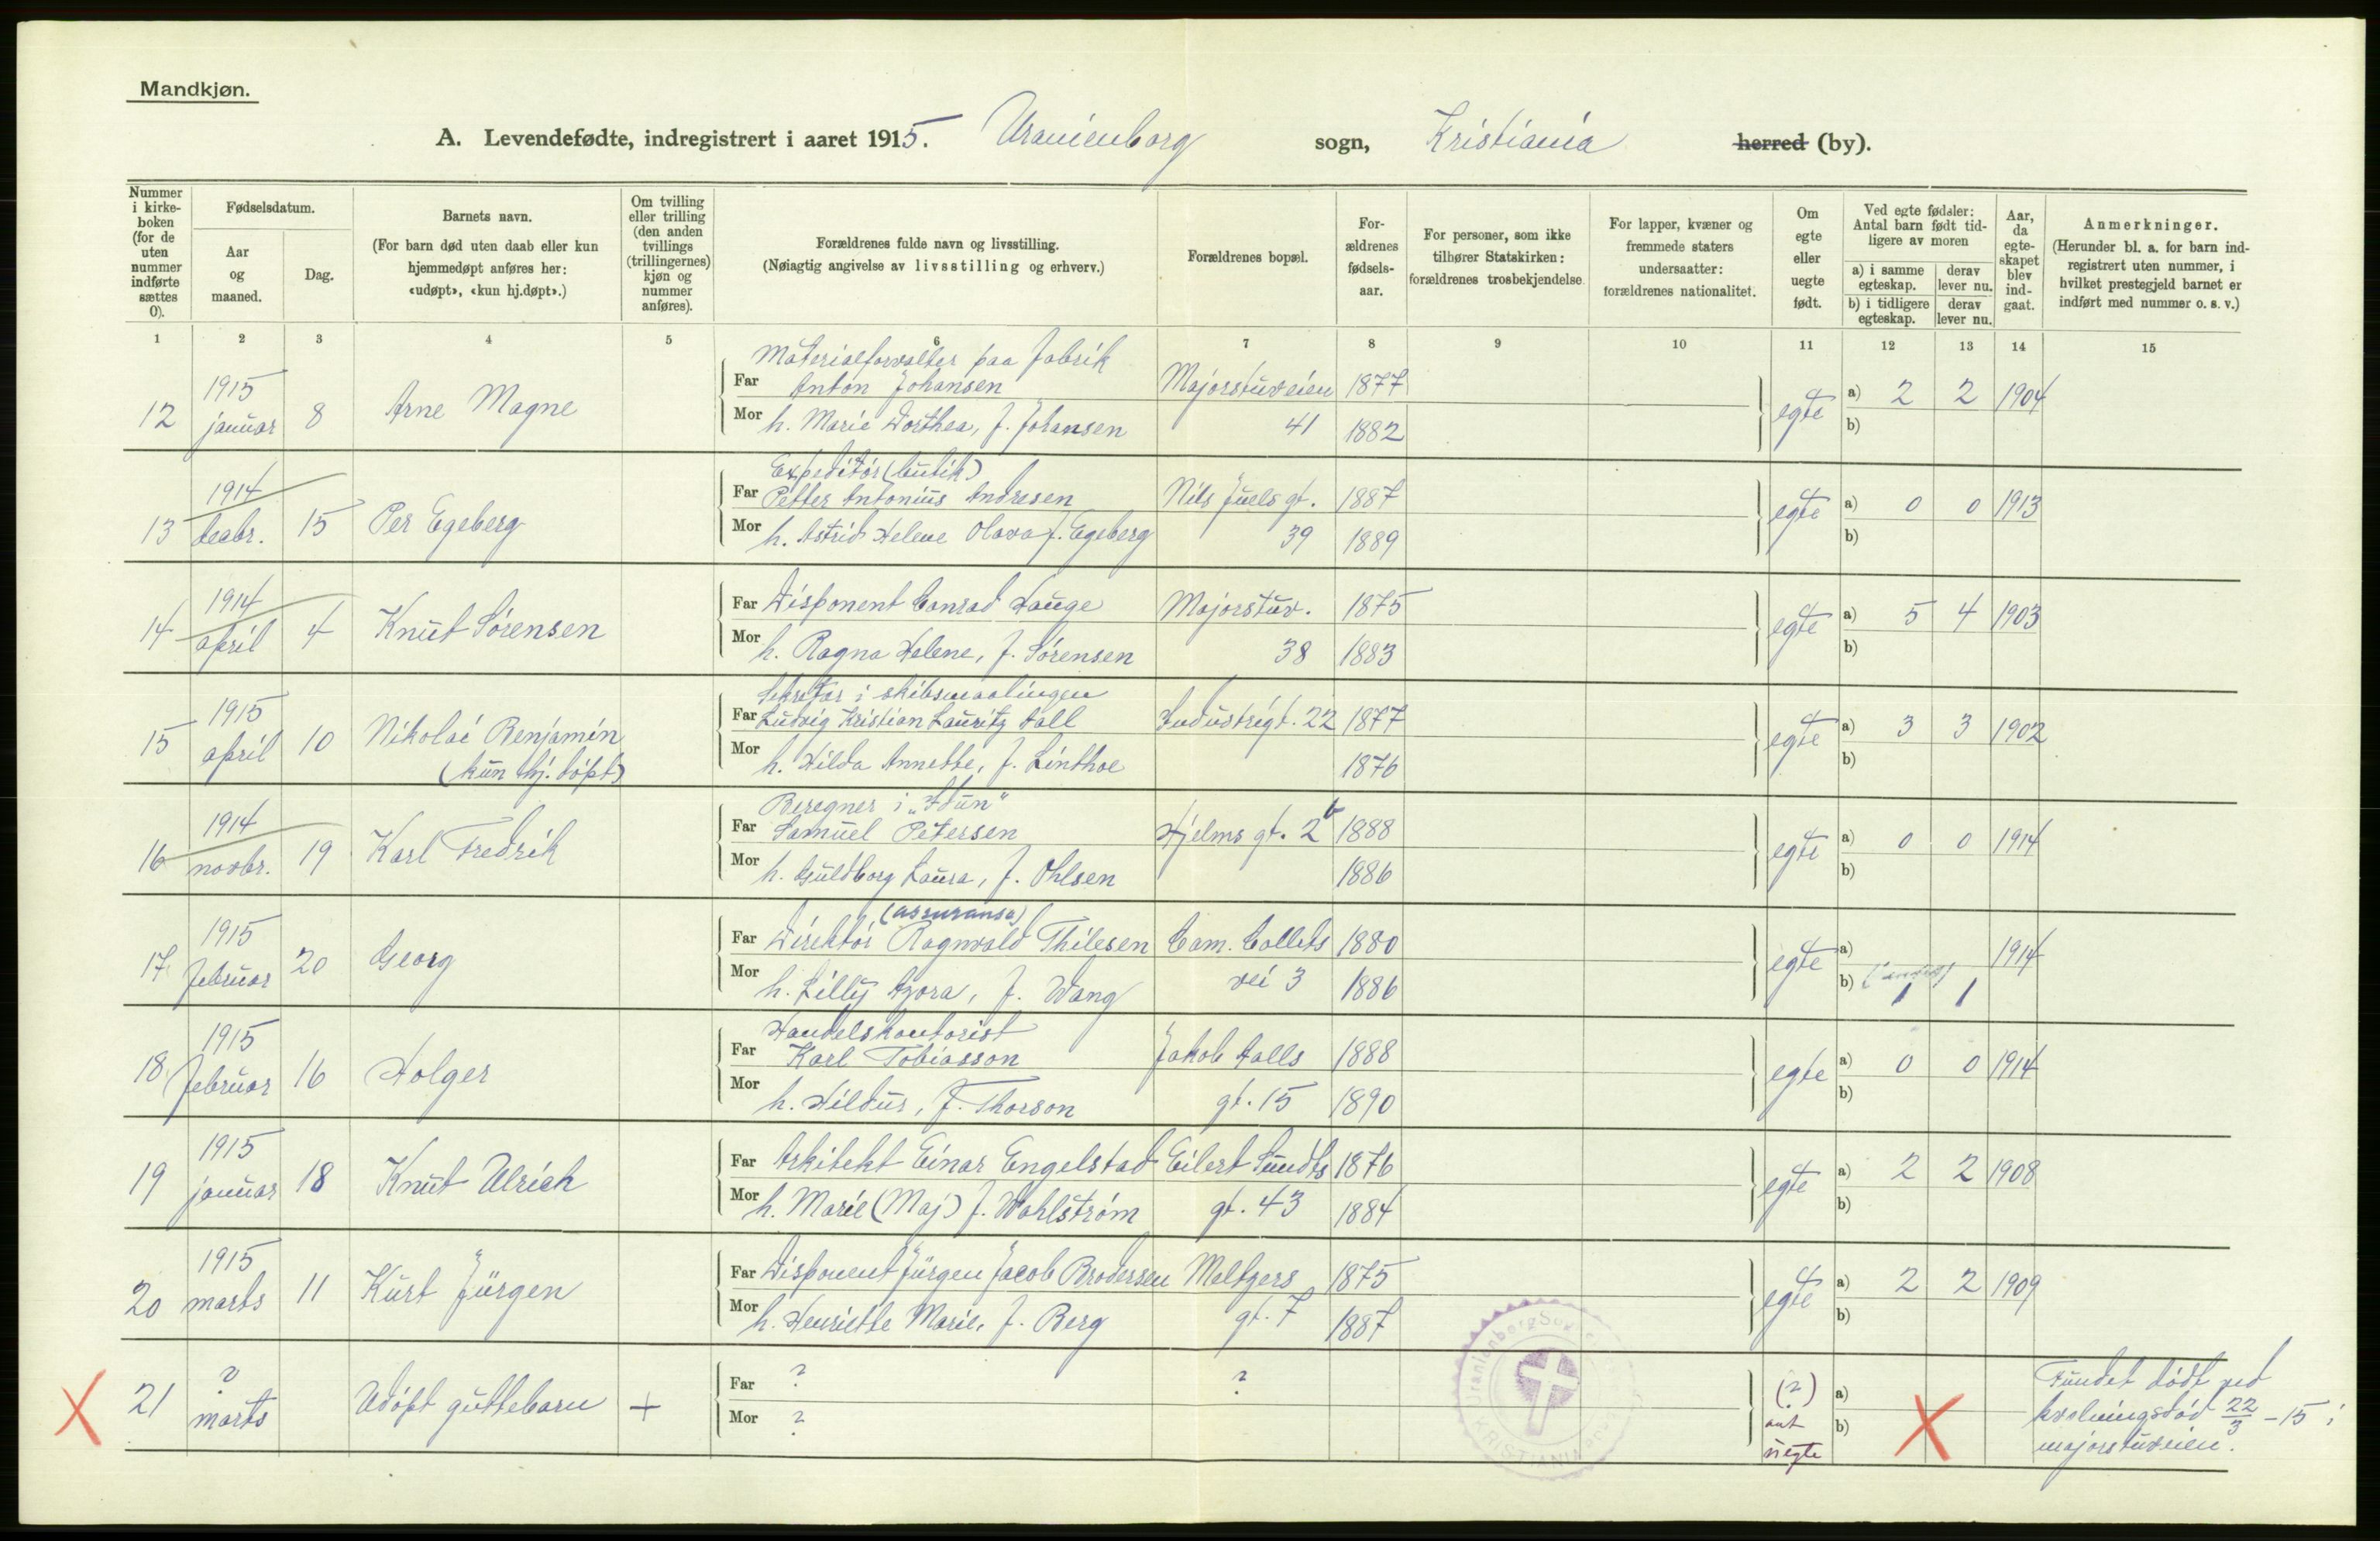 Mandkjøn.
A. Levendefødte, indregistrert i aaret 1915. Uranienborg sogn, Kristiania herred (by).
Nummer i kirkeboken (for de uten nummer indførte sættes 0).
Fødselsdatum.
Aar og maaned.
Dag.
Barnets navn.
(For barn død uten daab eller kun hjemmedøpt anføres her: «udøpt», «kun hj.døpt».)
Om tvilling eller trilling (den anden tvillings (trillingernes) kjøn og nummer anføres).
Forældrenes fulde navn og livsstilling.
(Nøiagtig angivelse av livsstilling og erhverv.)
Forældrenes bopæl.
Forældrenes fødselsaar.
For personer, som ikke tilhører Statskirken: forældrenes trosbekjendelse.
For lapper, kvæner og fremmede staters undersaatter: forældrenes nationalitet.
Om egte eller uegte født.
Ved egte fødsler: Antal barn født tidligere av moren
a) i samme egteskap.
derav lever nu.
b) i tidligere egteskap.
derav lever nu.
Aar, da egteskapet blev indgaat.
Anmerkninger.
(Herunder bl. a. for barn indregistrert uten nummer, i hvilket prestegjeld barnet er indført med nummer o. s. v.)
1 2 3 4 5 6 7 8 9 10 11 12 13 14 15
Materialforvalter paa fabrik
1915 Far Anton Johansen Majorstuveien 1877
12 januar 8 Arne Magne egte a) 2 2 1904
Mor h. Marie Dorthea, f. Johansen 41 1882 b)
Expeditør (butik)
1914 Far Petter Antonius Andresen Nils Juels gt. 1887
13 decbr. 15 Per Egeberg egte a) 0 0 1913
Mor h. Astrid Helene Olava f. Egeberg 39 1889 b)
1914 Far Disponent Conrad Hauge Majorstuv. 1875
14 april 4 Knut Sørensen egte a) 5 4 1903
Mor h. Ragna Helene, f. Sørensen 38 1883 b)
Sekretær i skibsmaalingen
1915 Far Ludvig Kristian Lauritz Aall Industrigt. 22 1877
15 april 10 Nikolai Benjamin egte a) 3 3 1902
(kun hj. døpt)
Mor h. Hilda Annette, f. Linthoe 1876 b)
Beregner i "Idun"
1914 Far Samuel Petersen Hjelms gt. 2b 1888
16 novbr. 19 Karl Fredrik egte a) 0 0 1914
Mor h. Guldborg Laura, f. Ohlsen 1886 b)
(assuranse)
1915 Far Direktør Ragnvald Thilesen Cam. Colletts 1880
17 februar 20 Georg egte a) 1914
Mor h. Lilly Azora, f. Wang vei 3 1886 b) 1 1
Handelskontorist
1915 Far Karl Tobiasson Jakob Aalls 1888
18 februar 16 Holger egte a) 0 0 1914
Mor h. Hildur, f. Thorson gt. 15 1890 b)
1915 Far Arkitekt Einar Engelstad Eilert Sundts 1876
19 januar 18 Knut Ulrich egte a) 2 2 1908
Mor h. Marie (Maj) f. Wahlstrøm gt. 43 1884 b)
1915 Far Disponent Jürgen Jacob Brodersen Meltzers 1875
20 marts 11 Kurt Jürgen egte a) 2 2 1909
Mor h. Henriette Marie, f. Berg gt. 7 1887 b)
X 21 ? marts Udøpt guttebarn + Far ? ? (?) a) X
Mor ? ant uegte b)
Fundet dødt ved
hvelningsdød 22/3 - 15 i
majorstuveien.
Uranienborg
KRISTIANIA